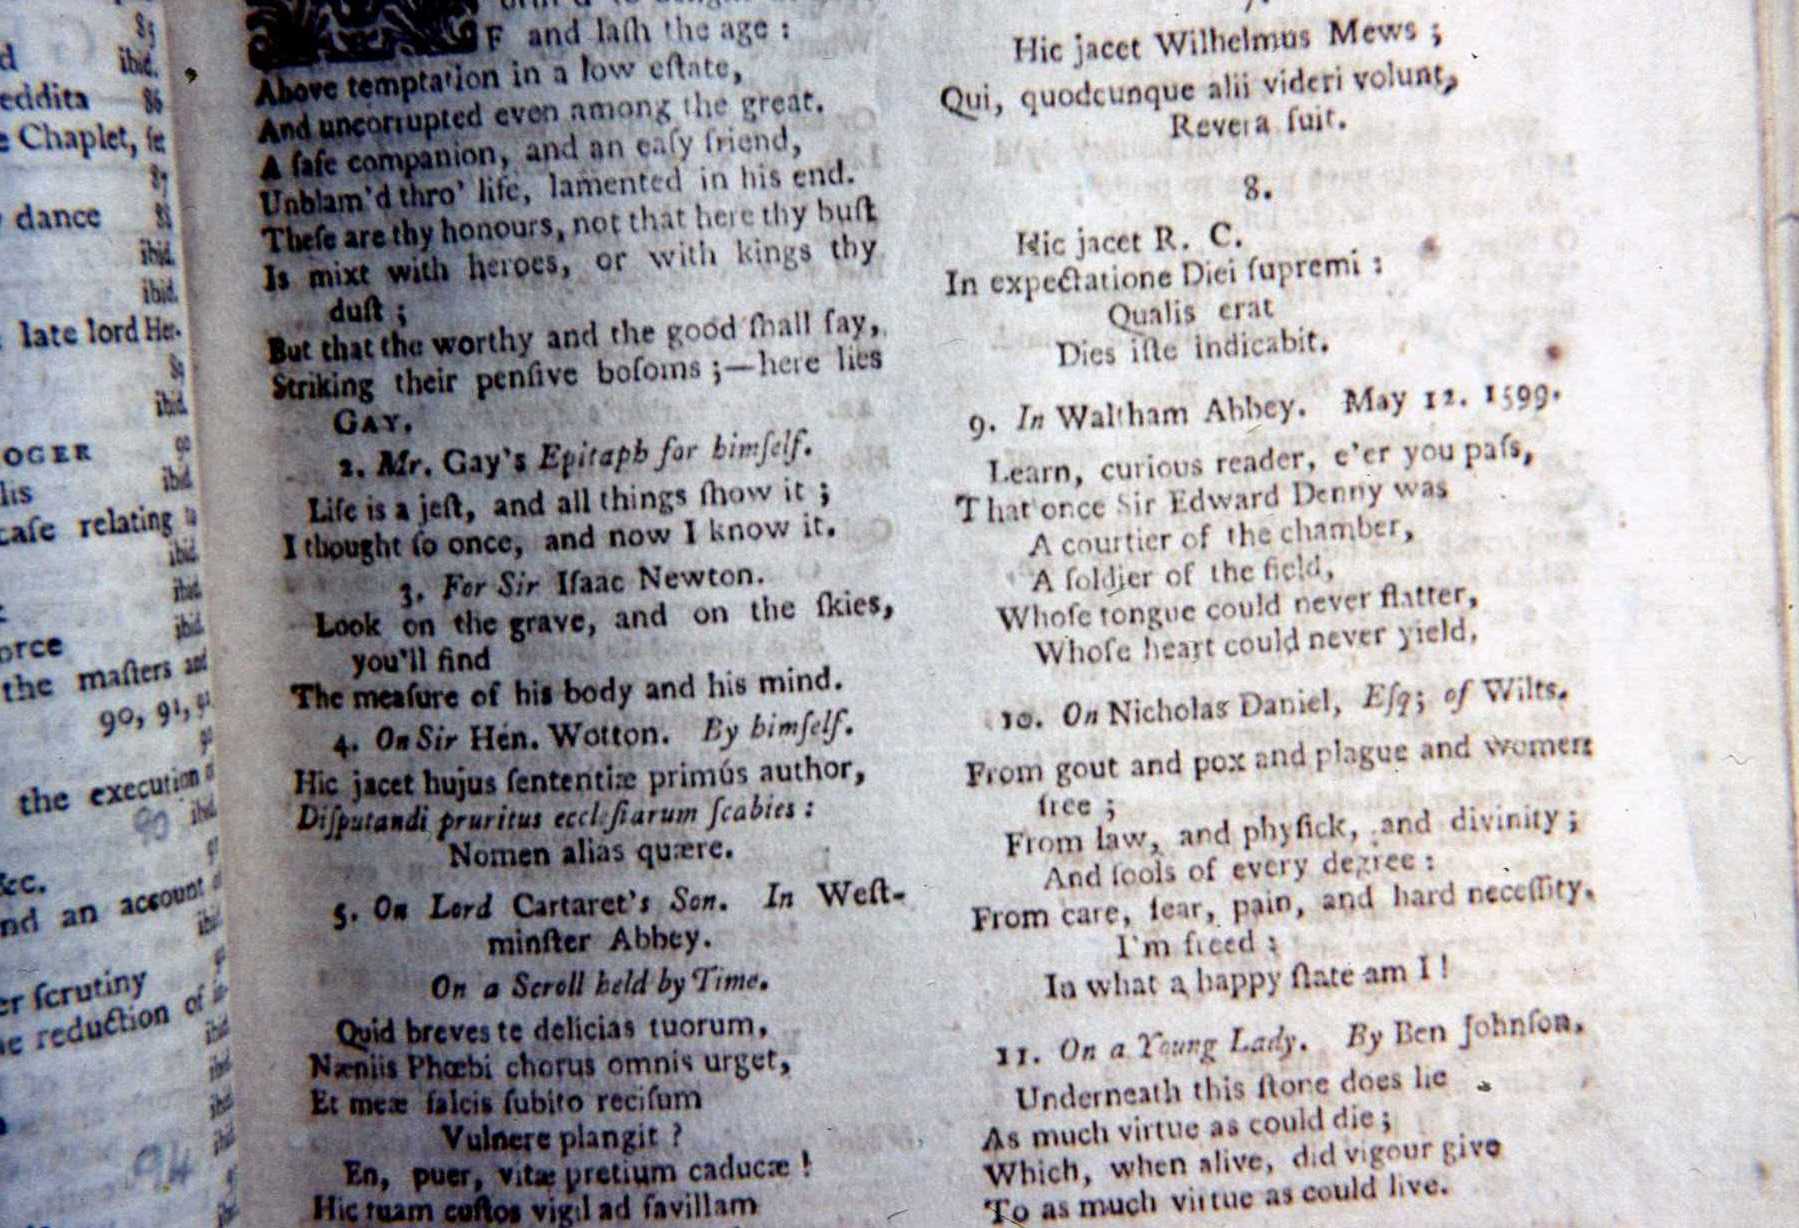 85
d ibid.
eddita 86
e Chaplet, ſe
87
dance 88
ibid.
ibid.
late lord Her.
89
ibid.
OGER 90
lis ibid.
caſe relating
ibid.
ibid.
orce ibid.
the maſters and
90, 91, 92
the execution
90 ibid.
&c.
nd an account
ibid.
er ſcrutiny
e reduction of
ibid.
ibid.
ibid.
ibid.
94
F and laſh the age :
Above temptation in a low eſtate,
And uncorrupted even among the great.
A ſafe companion, and an eaſy friend,
Unblam'd thro' life, lamented in his end.
Theſe are thy honours, not that here thy buſt
Is mixt with heroes, or with kings thy
duſt ;
But that the worthy and the good ſhall ſay,
Striking their penſive boſoms ;—here lies
GAY.
2. Mr. Gay's Epitaph for himſelf.
Life is a jeſt, and all things ſhow it ;
I thought ſo once, and now I know it.
3. For Sir Iſaac Newton.
Look on the grave, and on the ſkies,
you'll find
The meaſure of his body and his mind.
4. On Sir Hen. Wotton. By himſelf.
Hic jacet hujus ſententiæ primús author,
Diſputandi pruritus eccleſiarum ſcabies :
Nomen alias quære.
5. On Lord Cartaret's Son. In Weſt-
minſter Abbey.
On a Scroll held by Time.
Quid breves te delicias tuorum,
Næniis Phœbi chorus omnis urget,
Et meæ falcis ſubito reciſum
Vulnere plangit ?
En, puer, vitæ pretium caducæ !
Hic tuam cuſtos vigil ad favillam
7.
Hic jacet Wilhelmus Mews ;
Qui, quodcunque alii videri volunt,
Revera fuit.
8.
Hic jacet R. C.
In expectatione Diei ſupremi :
Qualis erat
Dies iſte indicabit.
9. In Waltham Abbey. May 12. 1599.
Learn, curious reader, e'er you paſs,
That once Sir Edward Denny was
A courtier of the chamber,
A ſoldier of the field,
Whoſe tongue could never flatter,
Whoſe heart could never yield,
10. On Nicholas Daniel, Eſq; of Wilts.
From gout and pox and plague and women
free ;
From law, and phyſick, and divinity ;
And fools of every degree :
From care, fear, pain, and hard neceſſity,
I'm freed :
In what a happy ſtate am I !
11. On a Young Lady. By Ben Johnſon.
Underneath this ſtone does lie
As much virtue as could die ;
Which, when alive, did vigour give
To as much virtue as could live.